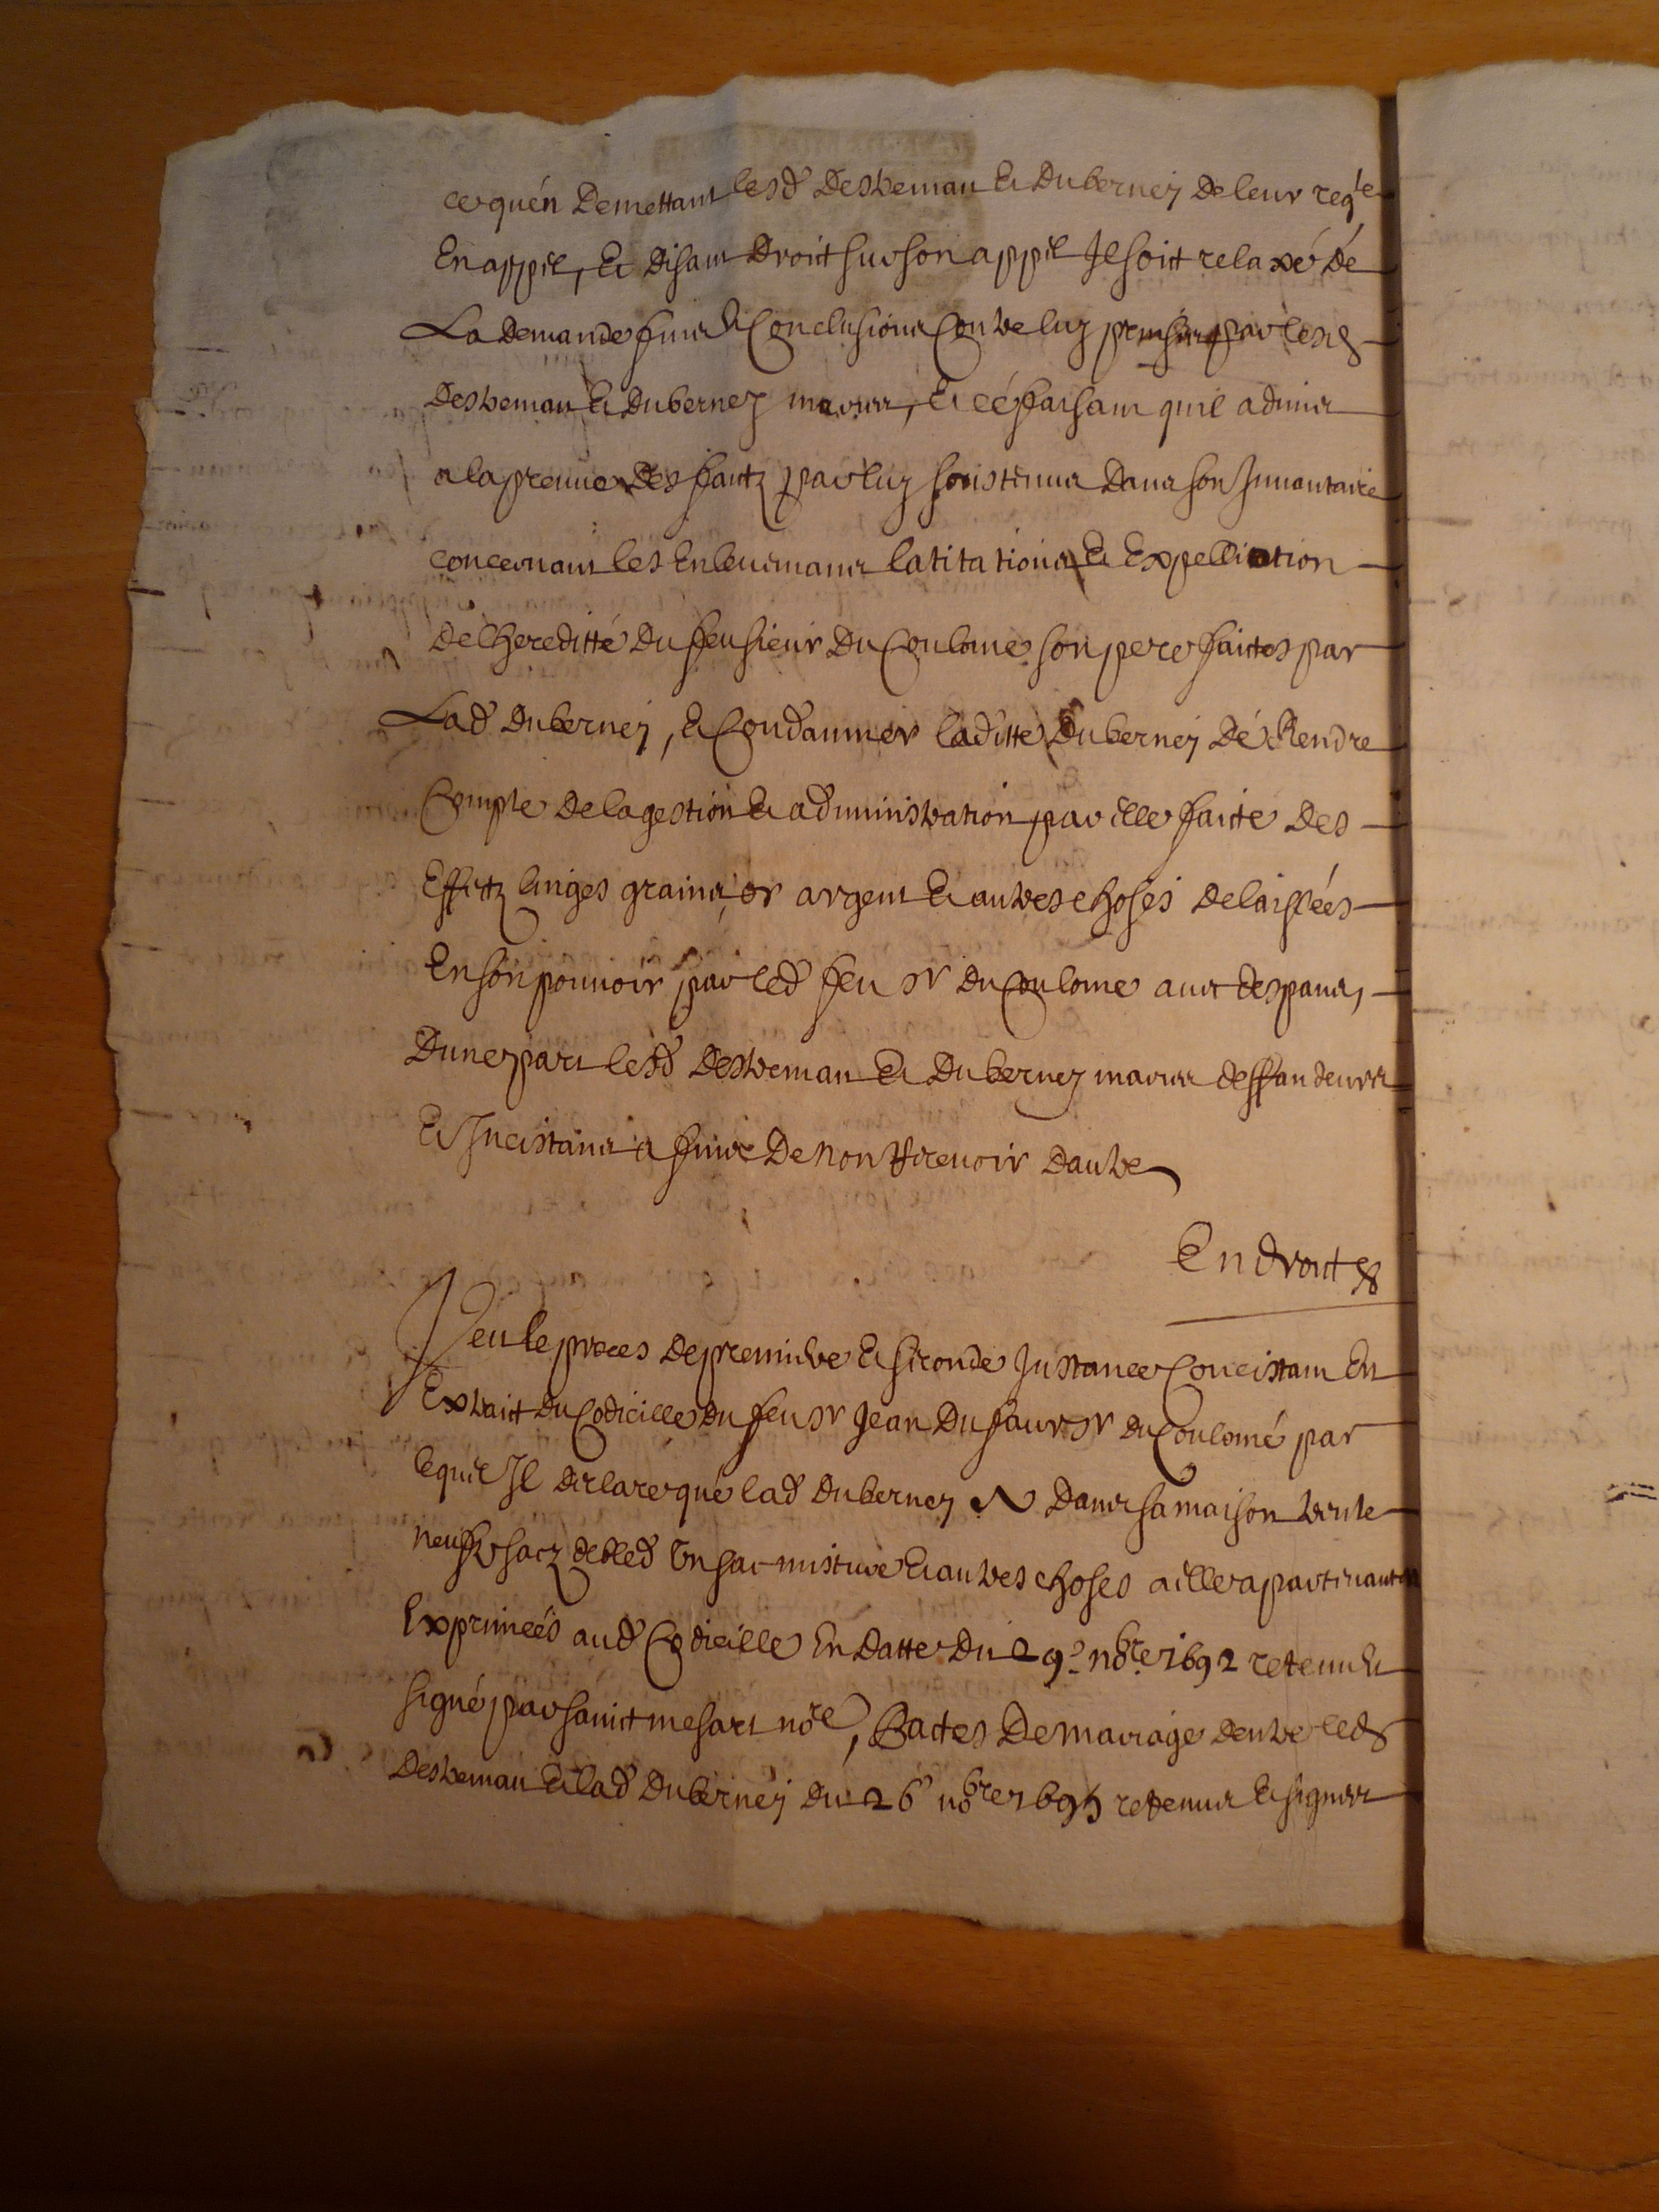 ce quén Demettant lesd Destremau Et Duberney De leur reqte
En appel, Et Disant Droit sur son appel Il soit relaxé dé
La Demande fins Et Conclusions Contre luy prinses par lesd
Destremau Et Duberney mariés, Et cé faisant quil admis
a la preuue Des faitz par luy soustenus Dans son Inuantaire
concernant les Enleuemans latitations Et Expelliation
De lhereditté Du feu sieur Du Coulome son pere faictes par
Lad Duberney, Et Condamner laditte Duberney Dé Rendre
Compte De la gestion Et administration par elle faicte Des
Effectz linges grains or argent Et autres choses Delaissées
En son pouuoir par led feu sr Du Coulome auec despans,
Dune part lesd Destremau Et Duberney mariés deffandeurs
Et Incistans a fins De non Receuoir Dautre
En droit
Veu le proces De premiere Et seconde Instance Concistant En
Extraict Du Codicille Du feu sr Jean Dufaur sr Du Coulomé par
lequel Il declare qué lad Duberney A Dans sa maison trente
neuf sacz de bled Un sac misture Et autres choses a elle apartenantes
Exprimeés aud Codicille En Datte Du 29e nobre 1692 retenu Et
signé par sainct mesart nore, Pactes De mariage Dentre led
Destremau Et lad Duberney Du 26e nobre 1695 retenus Et signés